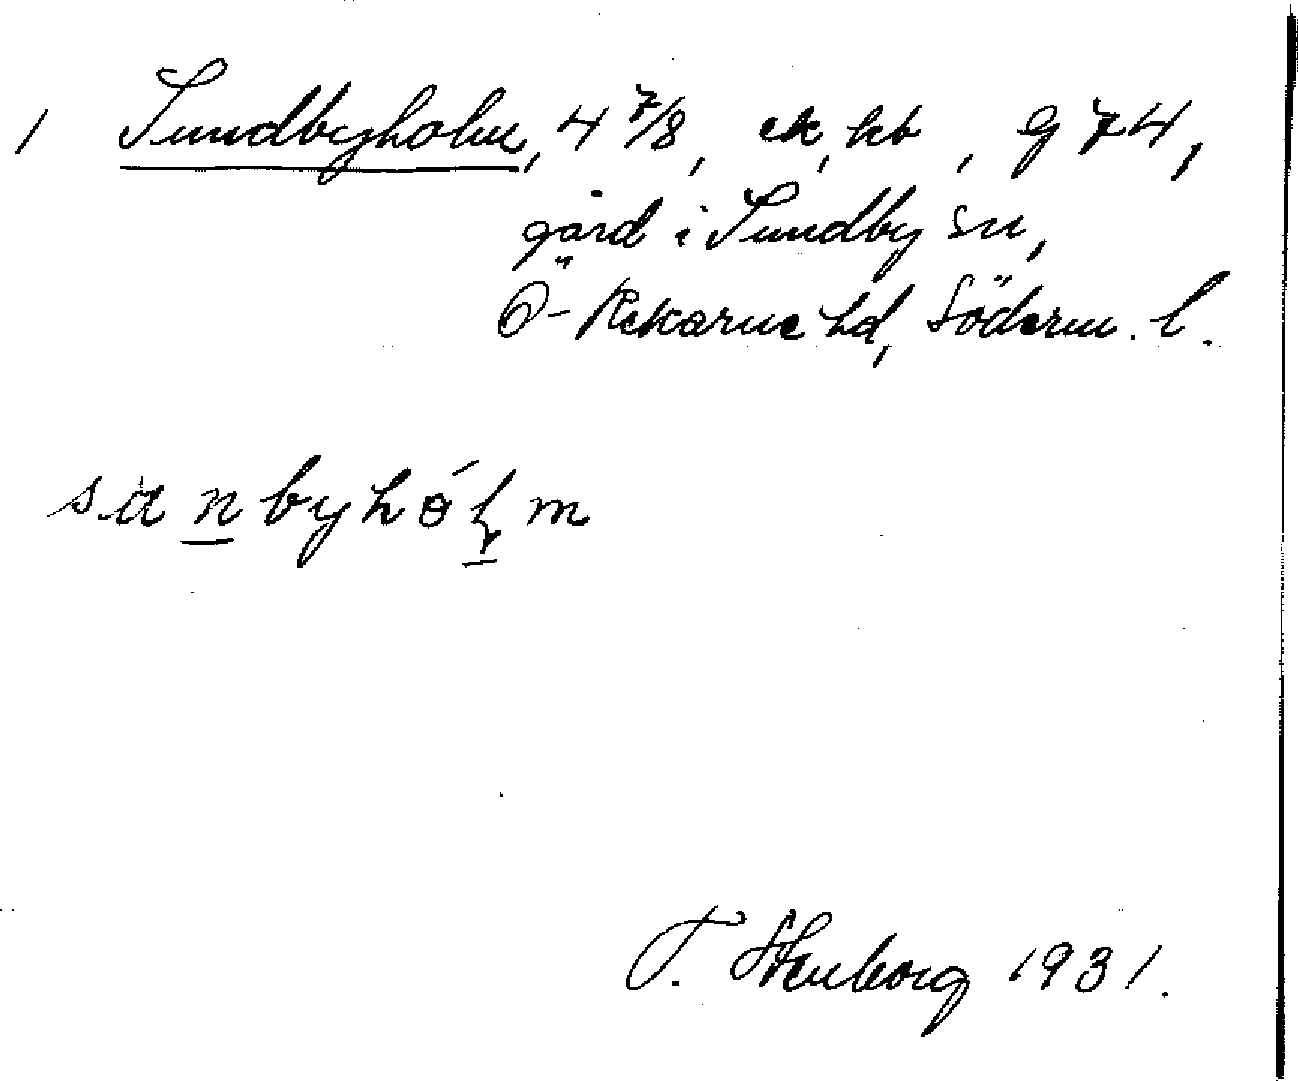 1 Sundbyholm, 4 7/8, ek, kb, G 74,
gård i Sundby sn,
Ö-Rekarne hd, Söderm. l.
T. Stenborg 1931.